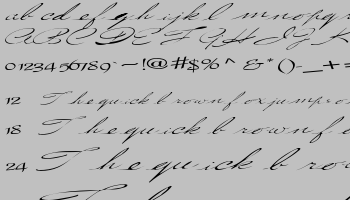 ab cd ef gh ijk l mnopqr
A B C D E F G H I J K
0123456789 ~!@#$%^&*()_+=
12 The quick brown fox jumps o
18 The quick brown f
24 The quick bro